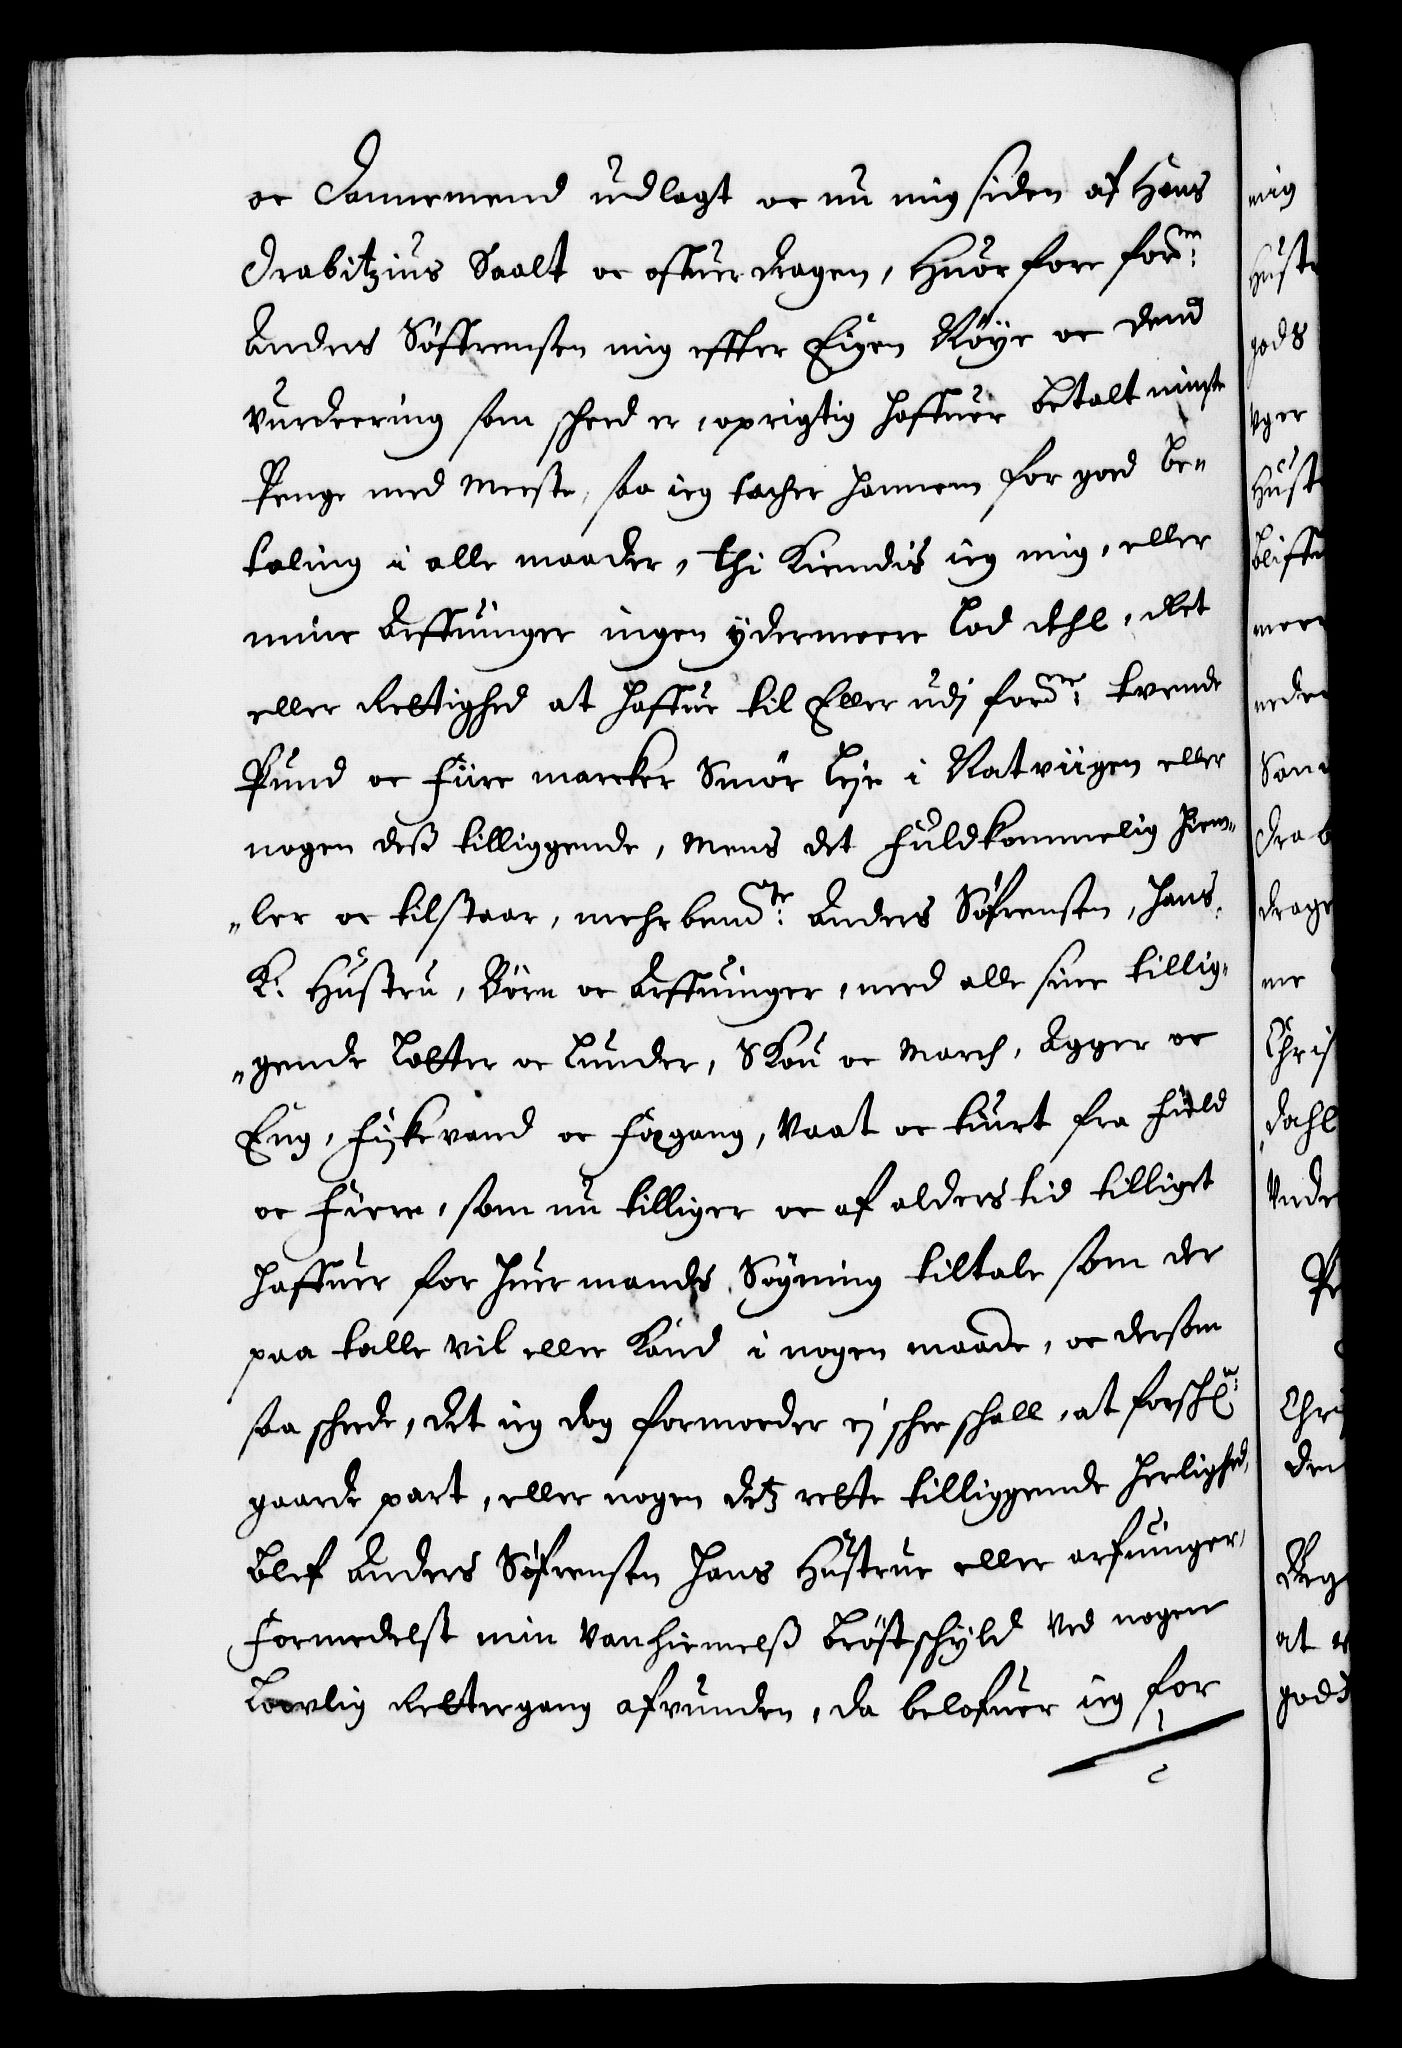 oc Dannemend udlagt oc nu mig siden af Hans
Drabitzius Saalt oc offuerdragen, Huorfore for:ne
Anders Söffrensen mig effter Eigen Nöye oc dend
Vurdering som scheed er, oprigtig haffuer betalt minste
Penge med Meeste, saa ieg tacher hannem for goed be„
taling i alle maader, thi Kiendis ieg mig, eller
mine Arffuinger ingen ydermeere Lod dehl, Ret
eller Rettighed at haffue til Eller udj for:ne tvende
Pund oc Fiire marcker Smör Leje i Ratviigen eller
nogen deß tilliggende, Mens det Fuldkommelig hiem„
„ler oc tilstaar, mehrbem:te Anders Söfrensen, hans
K: Hustru, Börn oc Arffuinger, med alle sine tillig„
„gende Lotter oc Lunder, Skou oc March, Agger oc
Eng, Fiskevand oc Fægang, Vaat oc tiurt fra Field
oc Fiere, som nu tilligger oc af alders tid tilliget
haffuer for huer mands Sögning tiltale som der
paa talle vil eller Kand i nogen maade, oc dersom
saa scheede, det ieg dog formoeder ej schee schall, at forsch:ne
gaarde part, eller nogen detz rette tilliggende herlighed,
Blef Anders Söfrensen hans Hustrue eller arfuinger,
Formedelst min Vanhiemelß bröstschyld Ved nogen
Lovlig Rettergang afvunden, da belofuer ieg for
mig
Hust
gods
Hust
Bliff
meer
neden
Drab
drage
me
Chris
dahl
Vnde
Pe
Chri
den
at
gods